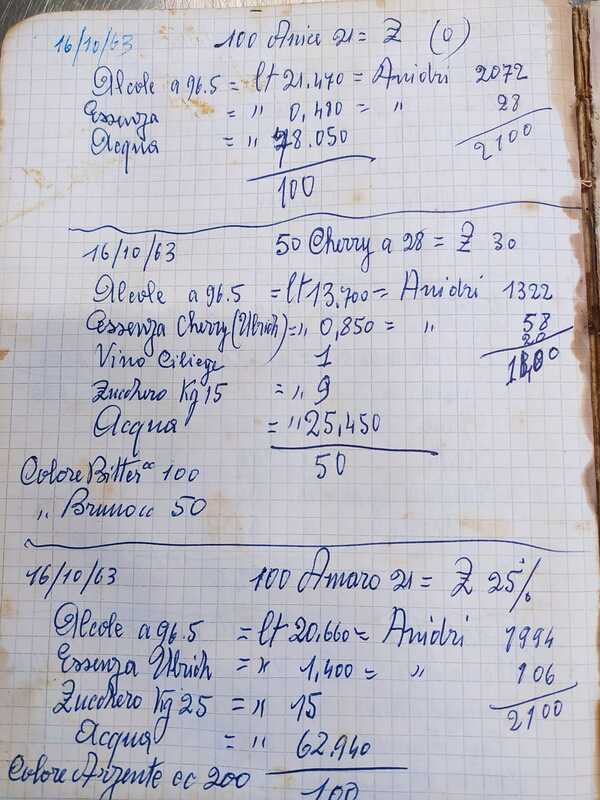 16/10/63 100 Anice 21 = Z (0)
Alcole a 96.5 = lt 21.470 = Anidri 2072
Essenza = " 0,480 = " 28
Acqua = " 78.050 2100
100
16/10/63 50 Cherry a 28 = Z 30
Alcole a 96.5 = lt 13.700 = Anidri 1322
Essenza Cherry (Ulrich) = " 0,850 = " 58
Vino Ciliege 1 20
Zucchero Kg 15 = " 9 1400
Acqua = " 25,450
50
Colore Bitter cc 100
" Bruno cc 50
16/10/63 100 Amaro 21 = Z 25%
Alcole a 96.5 = lt 20.660 = Anidri 1994
Essenza Ulrich = " 1,400 = " 106
Zucchero Kg 25 = " 15 2100
Acqua = " 62.940
Colore Argente cc 200 100